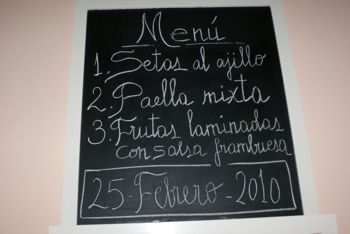 Menú
1. Setas al ajillo
2. Paella mixta
3. Frutas laminadas
con salsa frambuesa
25-Febrero-2010